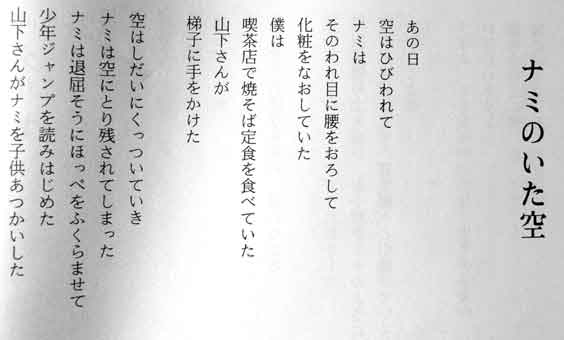 ナミのいた空
あの日
空はひびわれて
ナミは
そのわれ目に腰をおろして
化粧をなおしていた
僕は
喫茶店で焼そば定食を食べていた
山下さんが
梯子に手をかけた
空はしだいにくっついていき
ナミは空にとり残されてしまった
ナミは退屈そうにほっぺをふくらませて
少年ジャンプを読みはじめた
山下さんがナミを子供あつかいした